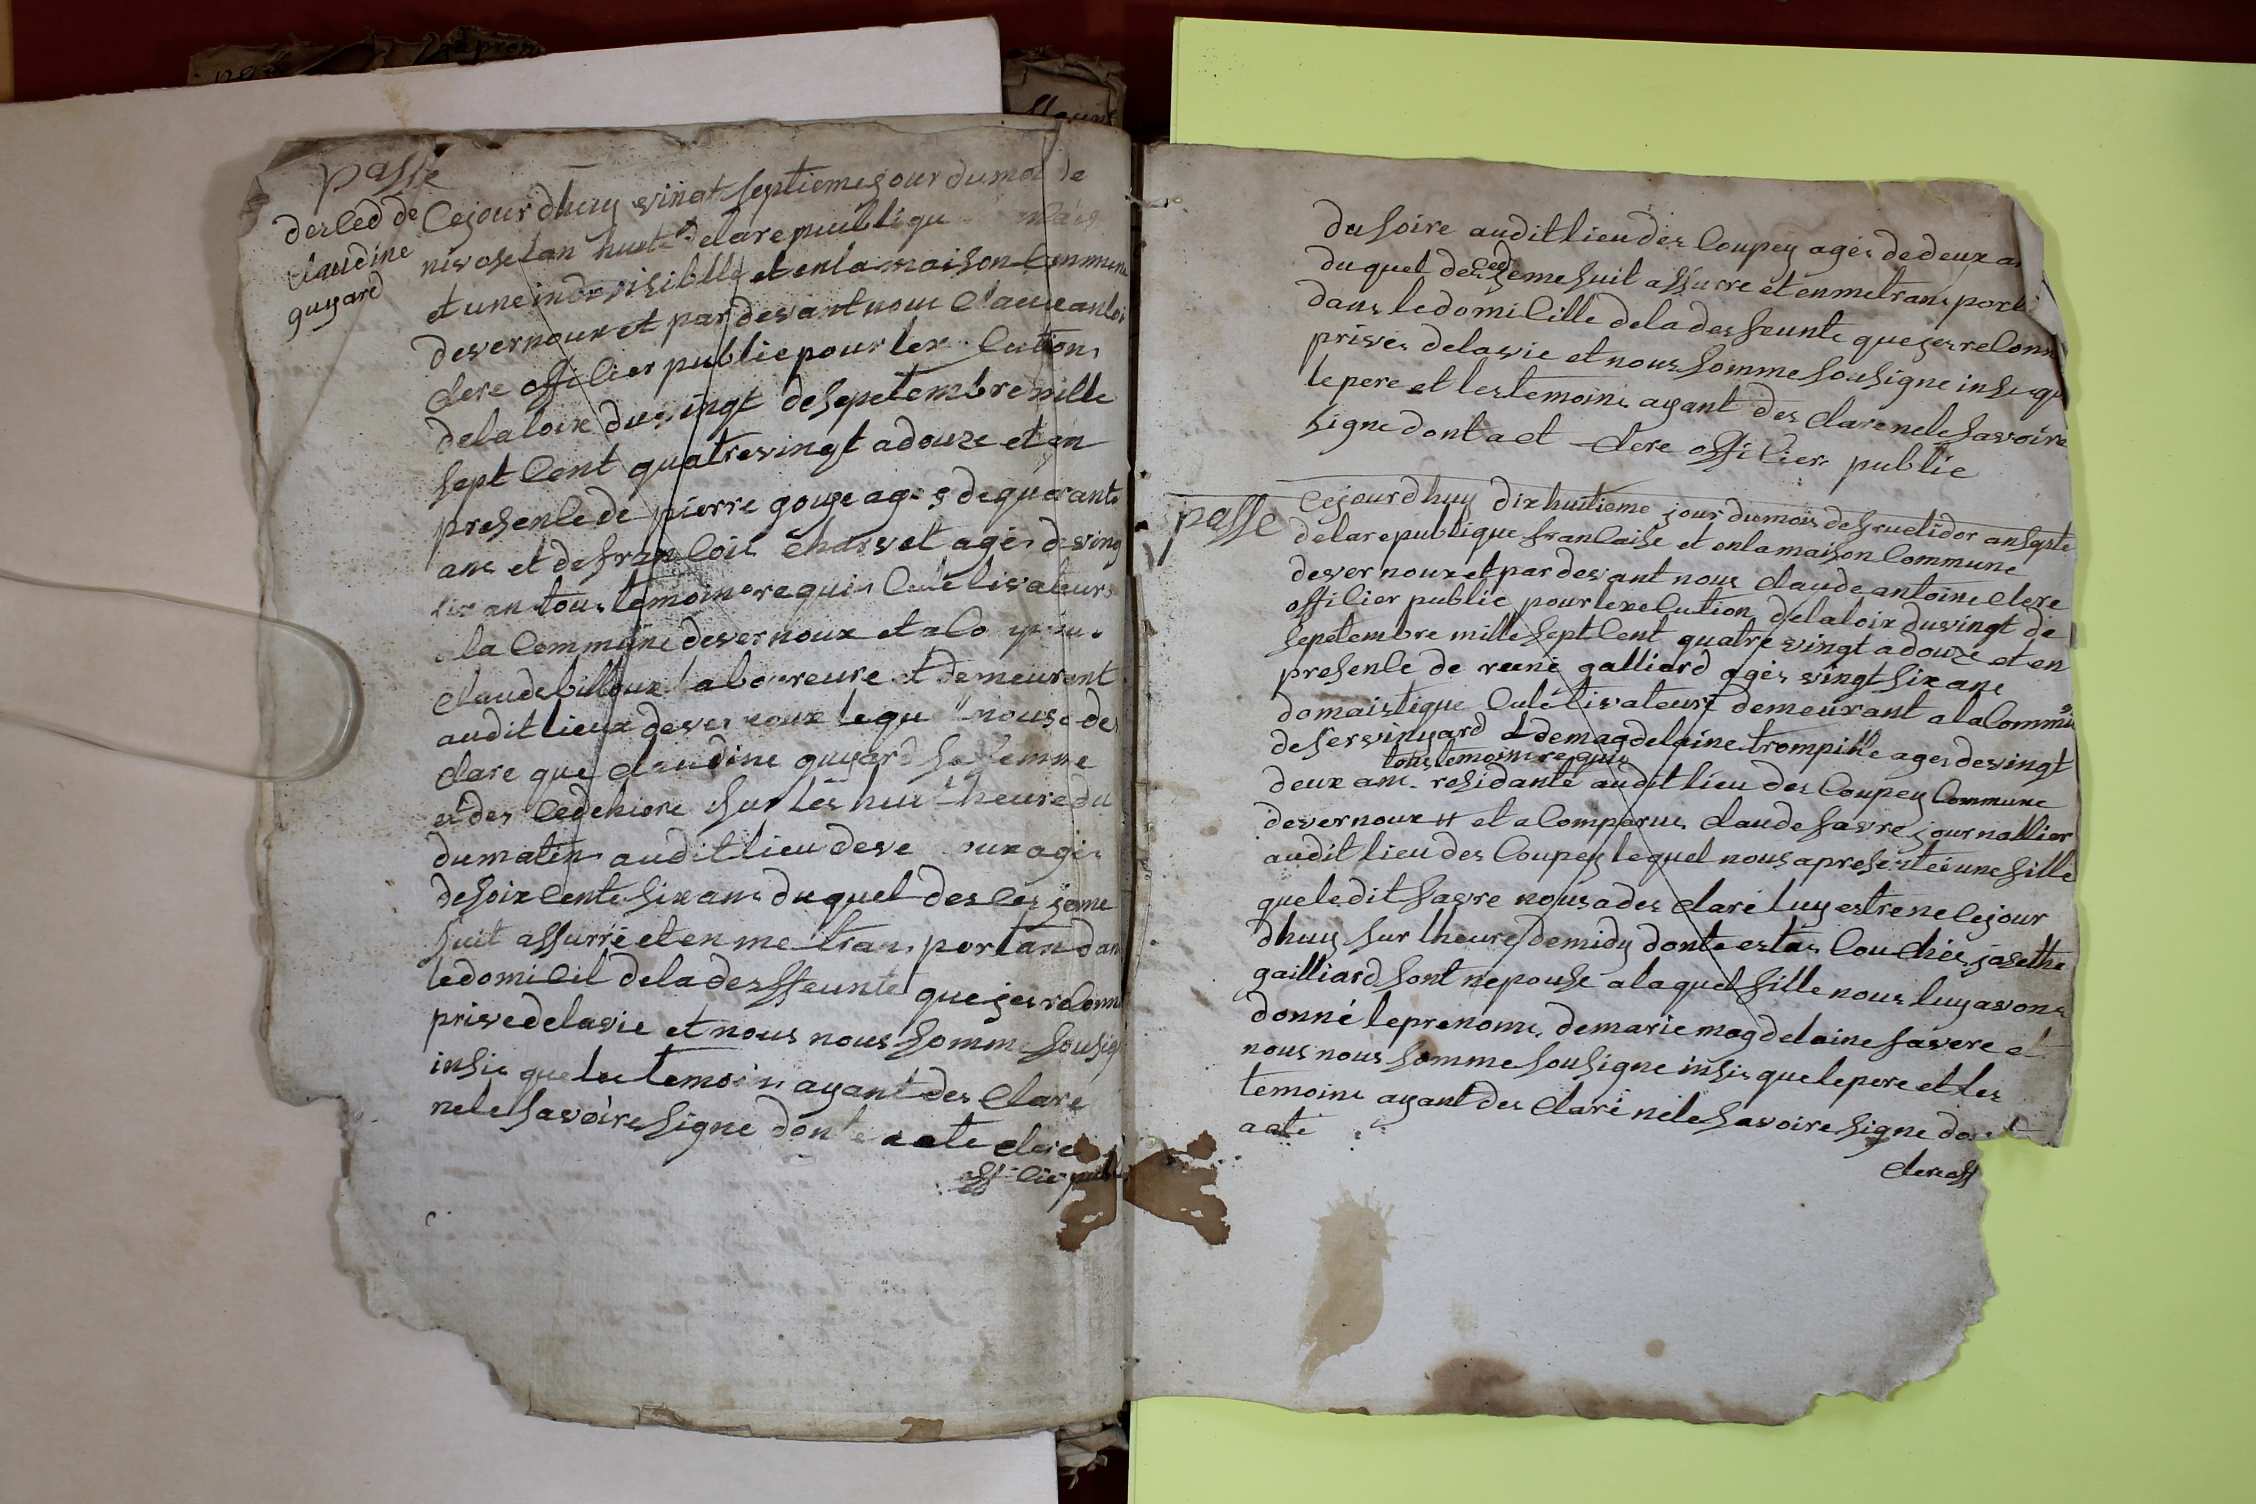 passe
des Ced de
Claudine
guyard
Cejour dhuy vingt septieme jour du moi de
nivose lan huite de la republiqu
et une indivisiblle et en la maison Commune
devernoux et par devant nous Claude antoi
Clere officier public pour lex Cution
de la loix du vingt de sepetembre mille
sept Cent quatre vingt a douze et en
presence de pierre gouge ages de quarante
ans et de francois Charvet ages de ving
six an tous temoins requis Culetivateurs
a la Commune devernoux et a Co
Claude billoux laboureure et demeurant
audit lieux devernoux lequ nous a des
Clare que Claudine guyard sa femme
et des Cedehiore sur les huit heure du
du matin audit lieu deve oux ages
de soix Cente six ans duquel des Ces jeme
suit assurré et en me trans portan dan
le domicil de la desffeunte que jes reConn
prive de la vie et nous nous somme sousig
insis que les temoins ayant des Clare
nele savoire signe donte acte Clere
offi Cier publ
du soire audit lieu des Coupey ages de deux an
duquel des Ced jeme suit assurre et en me trans porte
dans le domi Cille de la desfeunte que jes reConn
prives de la vie et nous somme sousigne insi que
le pere et les temoins ayant des Clare nele savoire
signe dont act Clere offi Cier public
passe
Cejourdhuy dix huitieme jour du mois de fruetidor an septe
de la republique francaise et en la maison Commune
devernoux et par devant nous Claude antoine Clere
officier public pour lexeCution de la loix du vingt de
sepetembre mille sept Cent quatre vingt a douze et en
presence de reené galliard ages vingt six ans
domaistique Culetivateure demeurant a la Commu
de servinyard & de magdelaine trompille ages de vingt
tous temoins requis
deux ans residante audit lieu des Coupey Commune
devernoux # et a Comparue Claude favre journallier
audit lieu des Coupey lequel nous a presentée une fille
que ledit favre nous a des Claré luy estre ne Cejour
dhuy sur lheure de midy donte estas Couchés josethe
gailliard sont nepouse a laquel fille nous luy avons
donné le prenome de marie magdelaine favere et
nous nous somme sousigne insis que le pere et les
temoins ayant des Claré nele savoire signe dont
acte
Clere off